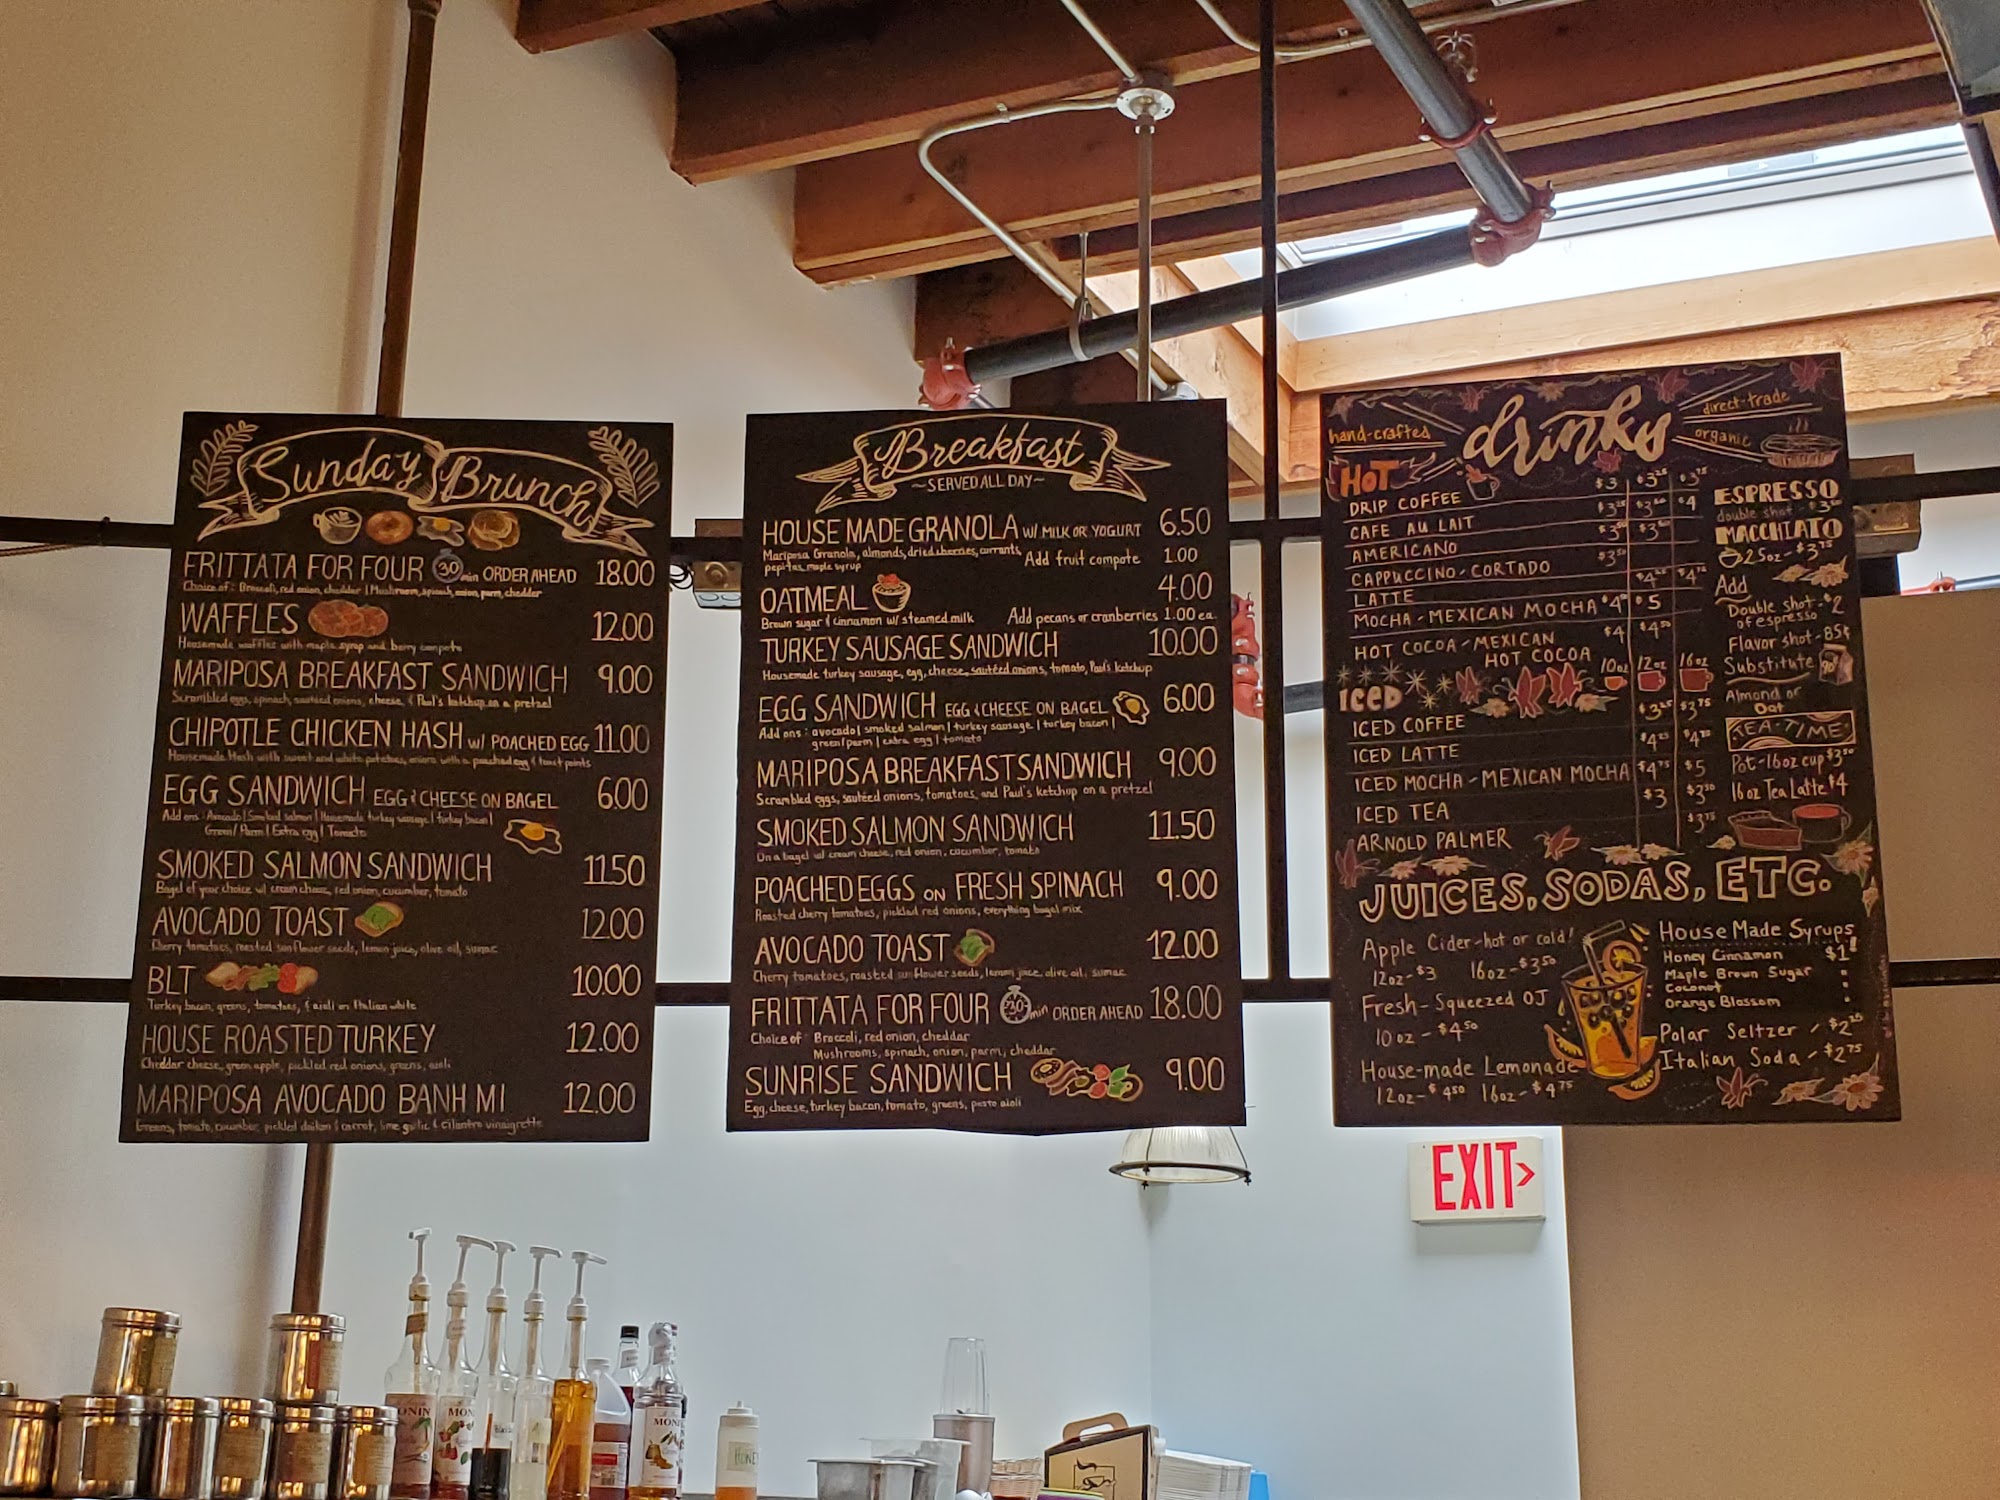 Sunday Brunch
FRITTATA FOR FOUR 30 min ORDER AHEAD 18.00
Choice of: Broccoli, red onion, cheddar | Mushroom, spinach, onion, parm, cheddar
WAFFLES 12.00
Housemade waffles with maple syrup and berry compote
MARIPOSA BREAKFAST SANDWICH 9.00
Scrambled eggs, spinach, sautéed onions, cheese, & Paul's ketchup on a pretzel
CHIPOTLE CHICKEN HASH w/ POACHED EGG 11.00
Housemade Hash with sweet and white potatoes, onions with a poached egg & toast points
EGG SANDWICH EGG & CHEESE ON BAGEL 6.00
Add ons: Avocado | Smoked salmon | Housemade turkey sausage | turkey bacon |
Green/Parm | Extra egg | Tomato
SMOKED SALMON SANDWICH 11.50
Bagel of your choice w/ cream cheese, red onion, cucumber, tomato
AVOCADO TOAST 12.00
Cherry tomatoes, roasted sunflower seeds, lemon juice, olive oil, sumac
BLT 10.00
Turkey bacon, greens, tomatoes, & aioli on Italian white
HOUSE ROASTED TURKEY 12.00
Cheddar cheese, green apple, pickled red onions, greens, aioli
MARIPOSA AVOCADO BANH MI 12.00
Greens, tomato, cucumber, pickled daikon & carrot, lime garlic & cilantro vinaigrette
Breakfast
~SERVED ALL DAY~
HOUSE MADE GRANOLA W/ MILK OR YOGURT 6.50
Mariposa Granola, almonds, dried cherries, currants,
pepitas, maple syrup
Add fruit compote 1.00
OATMEAL 4.00
Brown sugar & cinnamon w/ steamed milk Add pecans or cranberries 1.00 ea.
TURKEY SAUSAGE SANDWICH 10.00
Housemade turkey sausage, egg, cheese, sautéed onions, tomato, Paul's ketchup
EGG SANDWICH EGG & CHEESE ON BAGEL 6.00
Add ons: avocado | smoked salmon | turkey sausage | turkey bacon |
green/parm | extra egg | tomato
MARIPOSA BREAKFAST SANDWICH 9.00
Scrambled eggs, sautéed onions, tomatoes, and Paul's ketchup on a pretzel
SMOKED SALMON SANDWICH 11.50
On a bagel w/ cream cheese, red onion, cucumber, tomato
POACHED EGGS ON FRESH SPINACH 9.00
Roasted cherry tomatoes, pickled red onions, everything bagel mix
AVOCADO TOAST 12.00
Cherry tomatoes, roasted sunflower seeds, lemon juice, olive oil, sumac
FRITTATA FOR FOUR 30 min ORDER AHEAD 18.00
Choice of: Broccoli, red onion, cheddar
Mushrooms, spinach, onion, parm, cheddar
SUNRISE SANDWICH 9.00
Egg, cheese, turkey bacon, tomato, greens, pesto aioli
drinks
hand-crafted
direct-trade
organic
HOT
DRIP COFFEE $3 $3.25 $3.75
CAFE AU LAIT $3.25 $3.50 $4
AMERICANO $3 $3.50
CAPPUCCINO-CORTADO $3.50
LATTE $4.25 $4.75
MOCHA-MEXICAN MOCHA $4.50 $5
HOT COCOA-MEXICAN $4 $4.50
HOT COCOA
10oz 12oz 16oz
ICED
ICED COFFEE $3.25 $3.75
ICED LATTE $4.25 $4.75
ICED MOCHA-MEXICAN MOCHA $4.75 $5
ICED TEA $3 $3.50
ARNOLD PALMER $3.75
ESPRESSO
double shot-$3.00
MACCHIATO
2.5oz-$3.75
Add
Double shot-$2
of espresso
Flavor shot-85¢
Substitute 90¢
Almond or
Oat
TEA-TIME
Pot-16oz cup $3.50
16oz Tea Latte $4
JUICES, SODAS, ETC.
Apple Cider-hot or cold!
12oz-$3 16oz-$3.50
Fresh-Squeezed OJ
10oz-$4.50
House-made Lemonade
12oz-$4.50 16oz-$4.75
House Made Syrups
Honey Cinnamon $1
Maple Brown Sugar "
Coconut "
Orange Blossom "
Polar Seltzer - $2.25
Italian Soda - $2.75
EXIT
MONIN
MONIN
HONEY